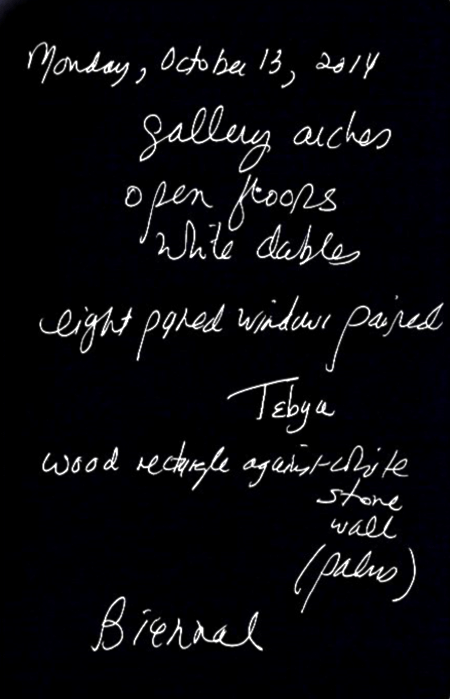 Monday, October 13, 2014
gallery arches
open floors
white
eight paned windows paired
wood rectangle against white
stone
wall
(palms)
Biennal